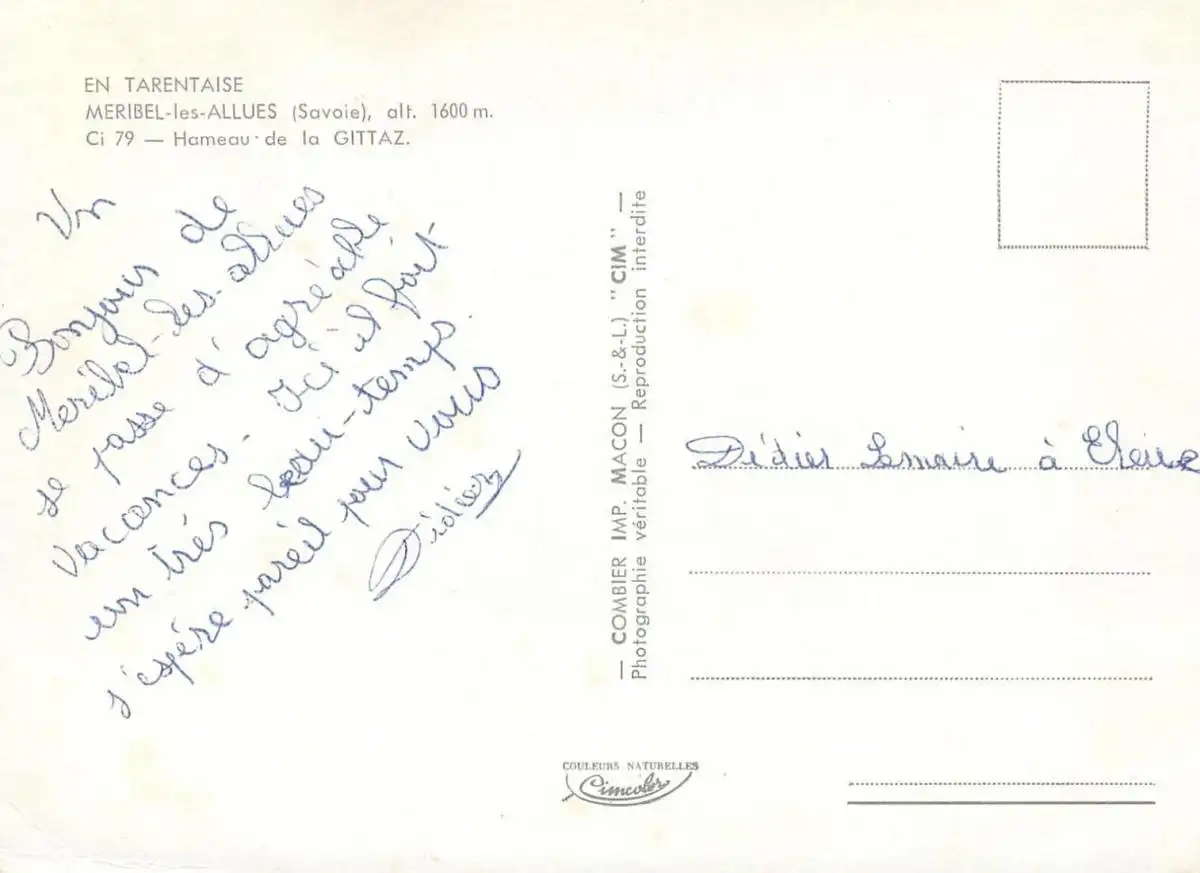 EN TARENTAISE
MERIBEL-les-ALLUES (Savoie), alt. 1600 m.
Ci 79 — Hameau de la GITTAZ.
Un
Bonjours de
Meribel-les-allues
se passe d'agréable
vacances. Ici il fait
un trés beau-temps.
j'espére pareil pour vous
Didier
— COMBIER IMP. MACON (S.-&-L.) "CIM" —
Photographie véritable — Reproduction interdite
Didier Lemaire à
COULEURS NATURELLES
Cimcolor